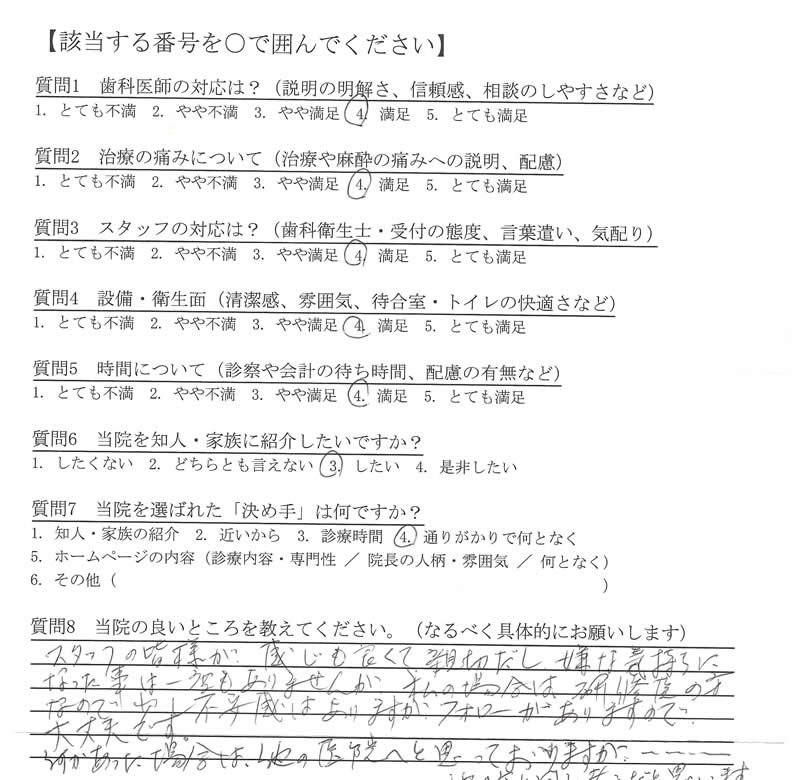 【該当する番号を○で囲んでください】
質問1　歯科医師の対応は？（説明の明解さ、信頼感、相談のしやすさなど）
1. とても不満　2. やや不満　3. やや満足　4. 満足　5. とても満足
質問2　治療の痛みについて（治療や麻酔の痛みへの説明、配慮）
1. とても不満　2. やや不満　3. やや満足　4. 満足　5. とても満足
質問3　スタッフの対応は？（歯科衛生士・受付の態度、言葉遣い、気配り）
1. とても不満　2. やや不満　3. やや満足　4. 満足　5. とても満足
質問4　設備・衛生面（清潔感、雰囲気、待合室・トイレの快適さなど）
1. とても不満　2. やや不満　3. やや満足　4. 満足　5. とても満足
質問5　時間について（診察や会計の待ち時間、配慮の有無など）
1. とても不満　2. やや不満　3. やや満足　4. 満足　5. とても満足
質問6　当院を知人・家族に紹介したいですか？
1. したくない　2. どちらとも言えない　3. したい　4. 是非したい
質問7　当院を選ばれた「決め手」は何ですか？
1. 知人・家族の紹介　2. 近いから　3. 診療時間　4. 通りがかりで何となく
5. ホームページの内容（診療内容・専門性 ／ 院長の人柄・雰囲気 ／ 何となく）
6. その他（　　　　　　　　　　）
質問8　当院の良いところを教えてください。（なるべく具体的にお願いします）
スタッフの皆様が、感じも良くて、親切だし、嫌な気持ちに
なった事は一度もありませんが、私の場合は、研修医の方
なので、少し不安感はありますが、フォローがありますので、
大丈夫です。
何かあった場合は、他の医院へと思っておりますが、